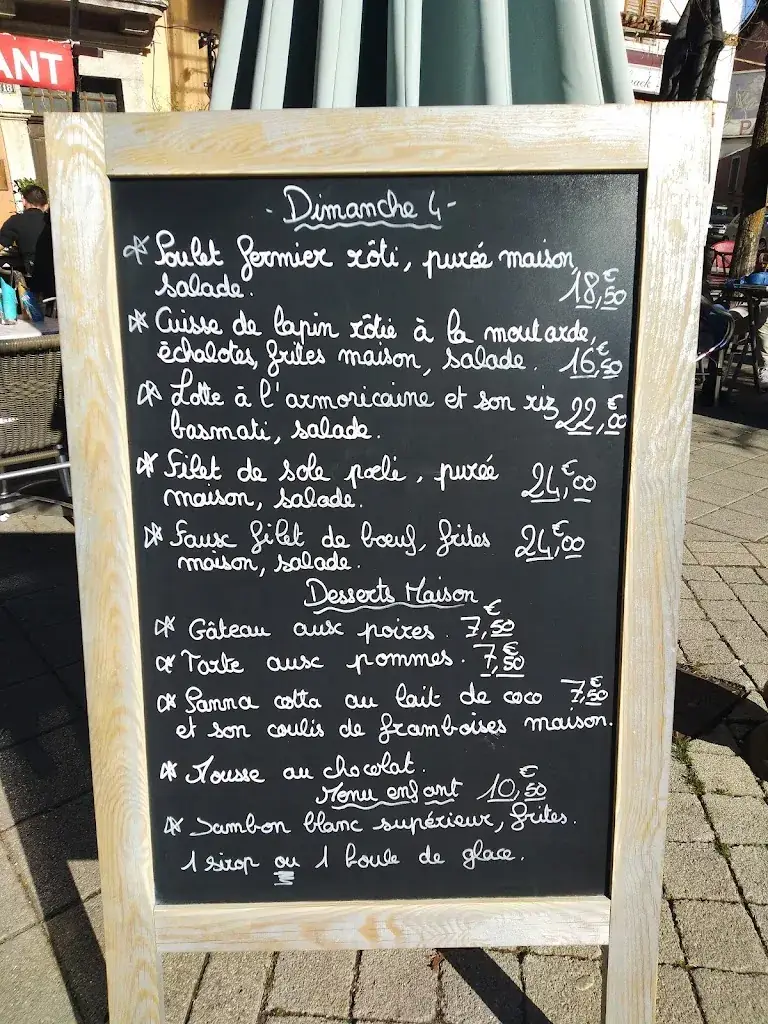 ANT
- Dimanche 4 -
Poulet fermier rôti, purée maison,
salade. 18,€50
Cuisse de lapin rôtie à la moutarde,
échalotes, frites maison, salade. 16,€50
Lotte à l'armoricaine et son riz 22,€00
basmati, salade.
Filet de sole poelé, purée 24,€00
maison, salade.
Faux filet de bœuf, frites 24,€00
maison, salade.
Desserts Maison
Gâteau aux poires. 7,€50
Tarte aux pommes. 7,€50
Panna cotta au lait de coco 7,€50
et son coulis de framboises maison.
Mousse au chocolat.
Menu enfant 10,€50
Jambon blanc supérieur, frites.
1 sirop ou 1 boule de glace.